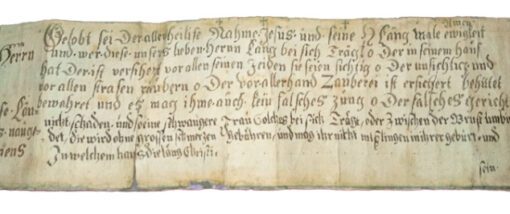 Amen
Gelobt sei Der allerheilige Nahme Jesus und seine H Lang male ewigkeit
Herrn und wer diese unsers lieben Herrn Lang bei sich Trägt o Der in seinem haus
hat Der ist versihert vor allen seinen feinden sie seien sichtig o Der unsichtig und
vor allen strasen raubern o Der vor allerhand Zauberei ist ersichert behütet
bewahret und es mag ihme auch kein falsches zung o Der falsches gericht
nicht schaden und seine schwangere Frau solches bei sich Trägt, oder zwischen der Brust umbin
det, die wird ohne grossen schmerzen Gebühren, und mag ihr nicht mislingen in ihrer gebürt und
iens In welchem haus die lang Christi
sein